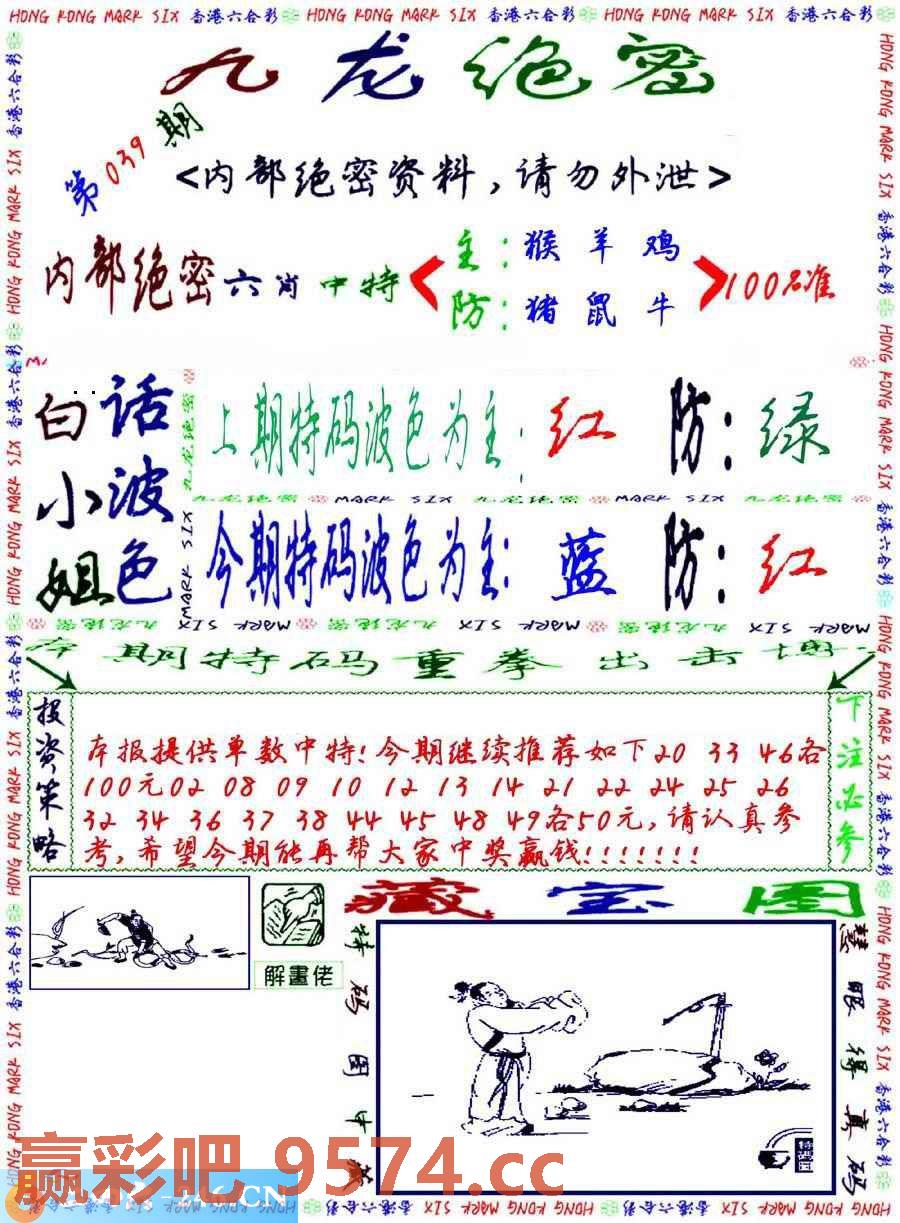 HONG KONG MARK SIX 香港六合彩 HONG KONG MARK SIX 香港六合彩 HONG KONG MARK SIX 香港六合彩 HONG KONG MARK SIX 香港六合彩
九龙绝密
第039期
<内部绝密资料,请勿外泄>
内部绝密六肖中特
主:猴羊鸡
防:猪鼠牛
100%准
白小姐
话波色
上期特码波色为主:红 防:绿
九龙绝密 MARK SIX 九龙绝密 MARK SIX 九龙绝密
今期特码波色为主:蓝 防:红
MARK SIX 九龙绝密 MARK SIX 九龙绝密 MARK SIX 九龙绝密 MARK SIX
本期特码重拳出击
投资策略
本报提供单数中特!今期继续推荐如下20 33 46各
100元02 08 09 10 12 13 14 21 22 24 25 26
32 34 36 37 38 44 45 48 49各50元,请认真参
考,希望今期能再帮大家中奖赢钱!!!!!!!
下注必参
解畫佬
藏宝图
特码图中藏
慧眼得真码
赢彩吧 9574.cc